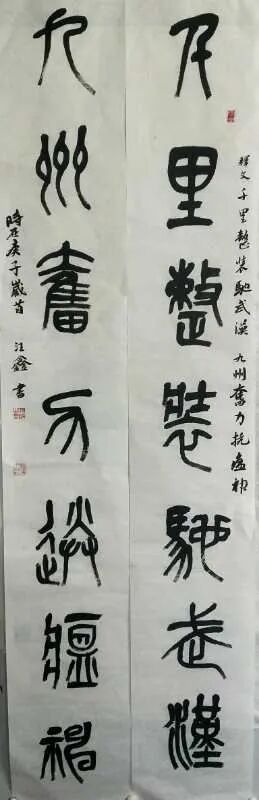 千里整裝馳武漢
九州奮力
釋文 千里整裝馳武漢 九州奮力抗瘟
時在庚子歲首 汪鑫書